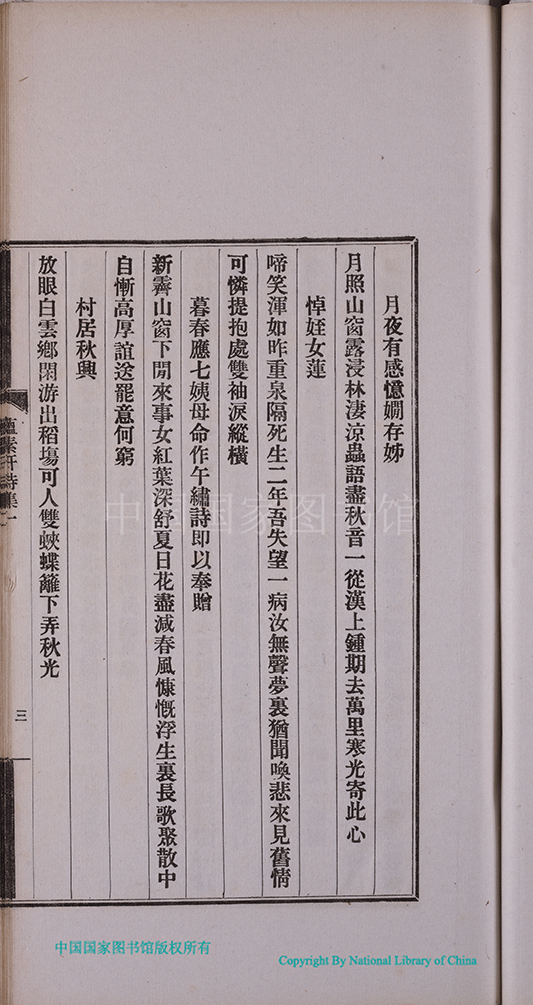 月夜有感憶嫺存姊
月照山窗露浸林淒涼蟲語盡秋音一從漢上鍾期去萬里寒光寄此心
悼姪女蓮
啼笑渾如昨重泉隔死生二年吾失望一病汝無聲夢裏猶聞喚悲來見舊情
可憐提抱處雙袖淚縱橫
暮春應七姨母命作午繡詩即以奉贈
新霽山窗下閒來事女紅葉深舒夏日花盡減春風慷慨浮生裏長歌聚散中
自慚高厚誼送罷意何窮
村居秋興
放眼白雲鄉閑游出稻塲可人雙蛺蝶籬下弄秋光
蘊素軒詩集一
三
中国国家图书馆
中国国家图书馆版权所有
Copyright By National Library of China